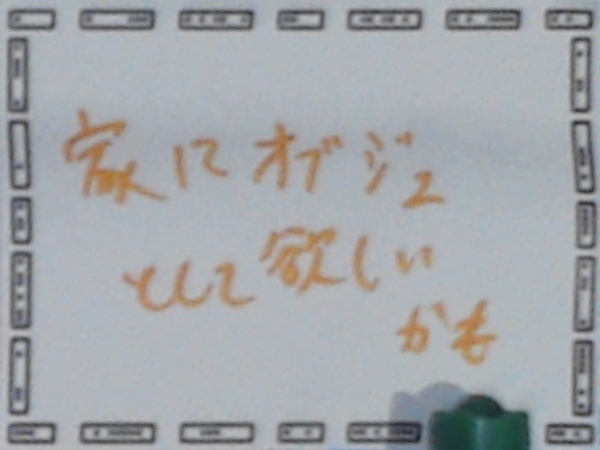 家にオブジェ
として欲しい
かも